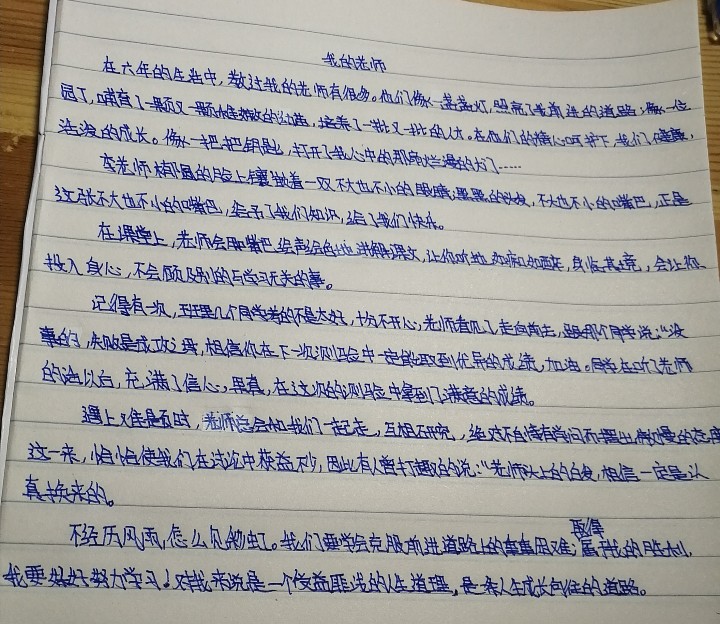 我的老师
在六年的生活中,教过我的老师有很多。他们像一盏盏灯,照亮了我前进的道路;像一位
园丁,哺育了一颗又一颗幼苗,培养了一批又一批的人才。在他们的精心呵护下,我们健康,
活泼的成长。像一把把钥匙,打开了我心中的那扇烂漫的大门……
李老师椭圆的脸上镶嵌着一双不大也不小的眼睛,黑黑的头发,不大也不小的嘴巴,正是
这张不大也不小的嘴巴,给予了我们知识,给了我们快乐。
在课堂上,老师会用嘴巴绘声绘色地讲解课文,让你听地如痴如醉,身临其境,会让你
投入身心,不会顾及别的与学习无关的事。
记得有一次,班里几个同学考的不是太好,十分不开心,老师看见了走向前去,跟那个同学说:“没
事的,失败是成功之母,相信你在下一次测验中一定能取到优异的成绩,加油。同学在听了老师
的话以后,充满了信心,果真,在这次的测验中拿到了满意的成绩。
遇上难题时,老师总会和我们一起走,互相研究,绝对不自恃有学问而摆出傲慢的态度
这一来,恰恰使我们在讨论中获益不少,因此有人曾打趣的说:“老师头上的白发,相信一定是认
真换来的。
不经历风雨,怎么见彩虹。我们要学会克服前进道路上的重重困难;取得属于我的胜利,
我要好好努力学习!对我来说是一个受益匪浅的人生道理,是条人生成长向往的道路。